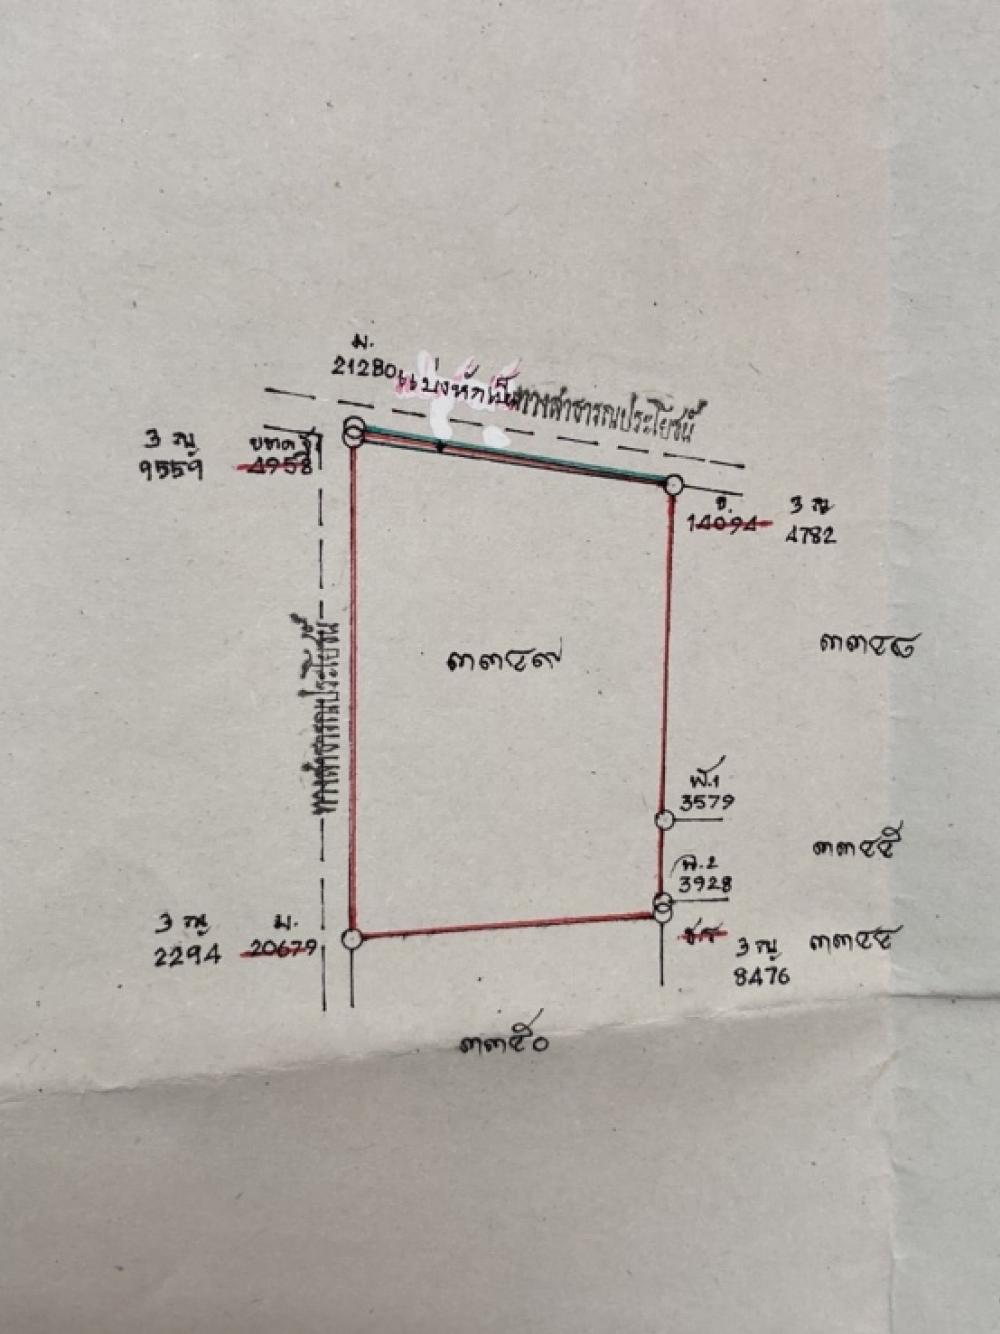 ม.
21280
แบ่งหักเป็นทางสาธารณประโยชน์
3 ณ
9559
ขาด
4958
ข.
14094
3 ณ
4782
๓๓๔๙
๓๓๔๘
ทางสาธารณประโยชน์
พ.1
3579
๓๓๔๕
พ.2
3928
3 ณ
2294
ม.
20679
3 ณ
8476
๓๓๔๔
๓๓๕๐